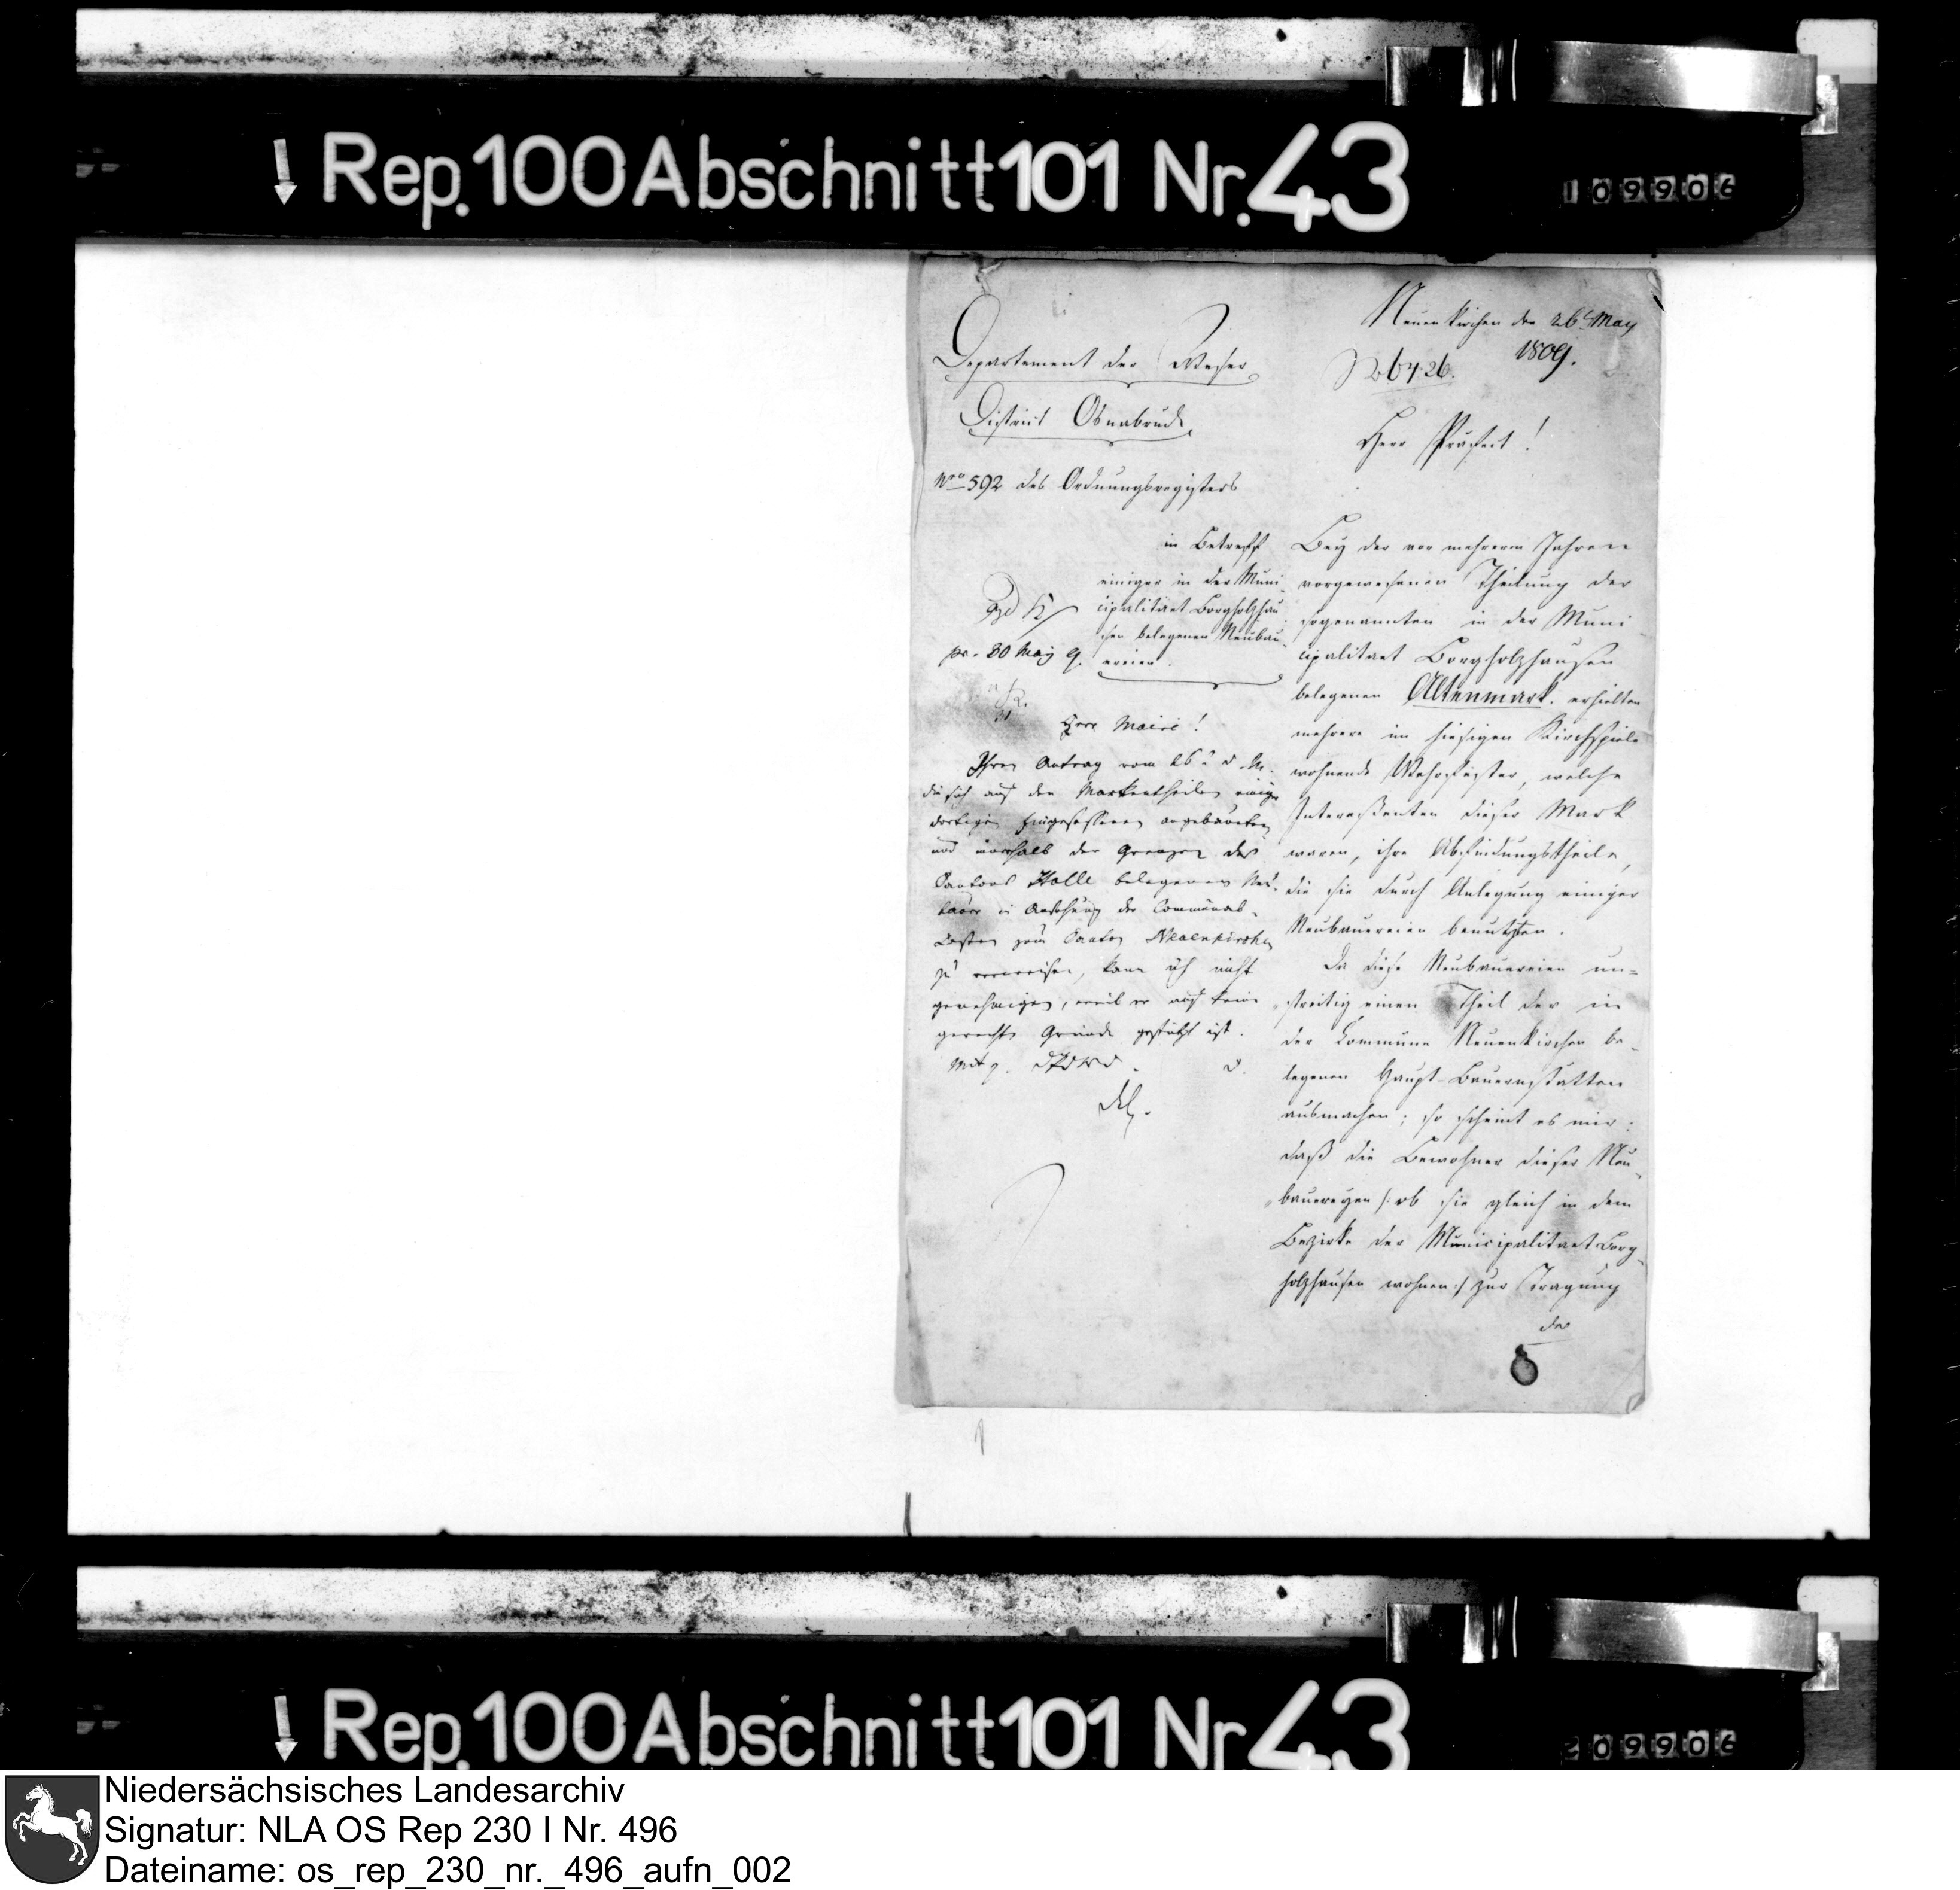 Rep. 100 Abschnitt 101 Nr. 43
109906
Neuenkirchen den 26t May
1809.
No 6426.
Departement der Weser
District Osnabrück
Nro 592 des Ordnungsregisters
Herr Präfect!
in Betreff
einiger in der Muni
cipalitaet Borgholzhau
sen belegenen Neubau-
ereien.
pr. 30 May 9.
Herr Maire!
Ihren Antrag vom 26t d. M.
die sich auf den Markentheilen einiger
dortigen Eingesessenen angebaueten
und innerhalb der Grenzen des
Cantons Halle belegenen Neu-
bauer in Ansehung der Communal-
Lasten zum Canton Neuenkirchen
zu verweisen, kann ich nicht
genehmigen, weil er auf keine
gerechte Gründe gestützt ist.
Mit
Bey der vor mehreren Jahren
vorgewesenen Theilung der
sogenannten in der Muni
cipalitaet Borgholzhausen
belegenen Altenmark. erhielten
mehrere im hiesigen Kirchspiele
wohnende Wehrfester, welche
Interessenten dieser Mark
waren, ihre Abfindungstheile,
die sie durch Anlegung einiger
Neubauereien benutzten.
Da diese Neubauereien un-
streitig einen Theil der in
der Commune Neuenkirchen be-
legenen Haupt-Bauernstätten
ausmachen; so scheint es mir:
daß die Bewohner dieser Neu-
bauereyen /: ob sie gleich in dem
Bezirke der Municipalitaet Borg-
holzhausen wohnen :/ zur Tragung
der
Rep. 100 Abschnitt 101 Nr. 43
209906
Niedersächsisches Landesarchiv
Signatur: NLA OS Rep 230 I Nr. 496
Dateiname: os_rep_230_nr._496_aufn_002